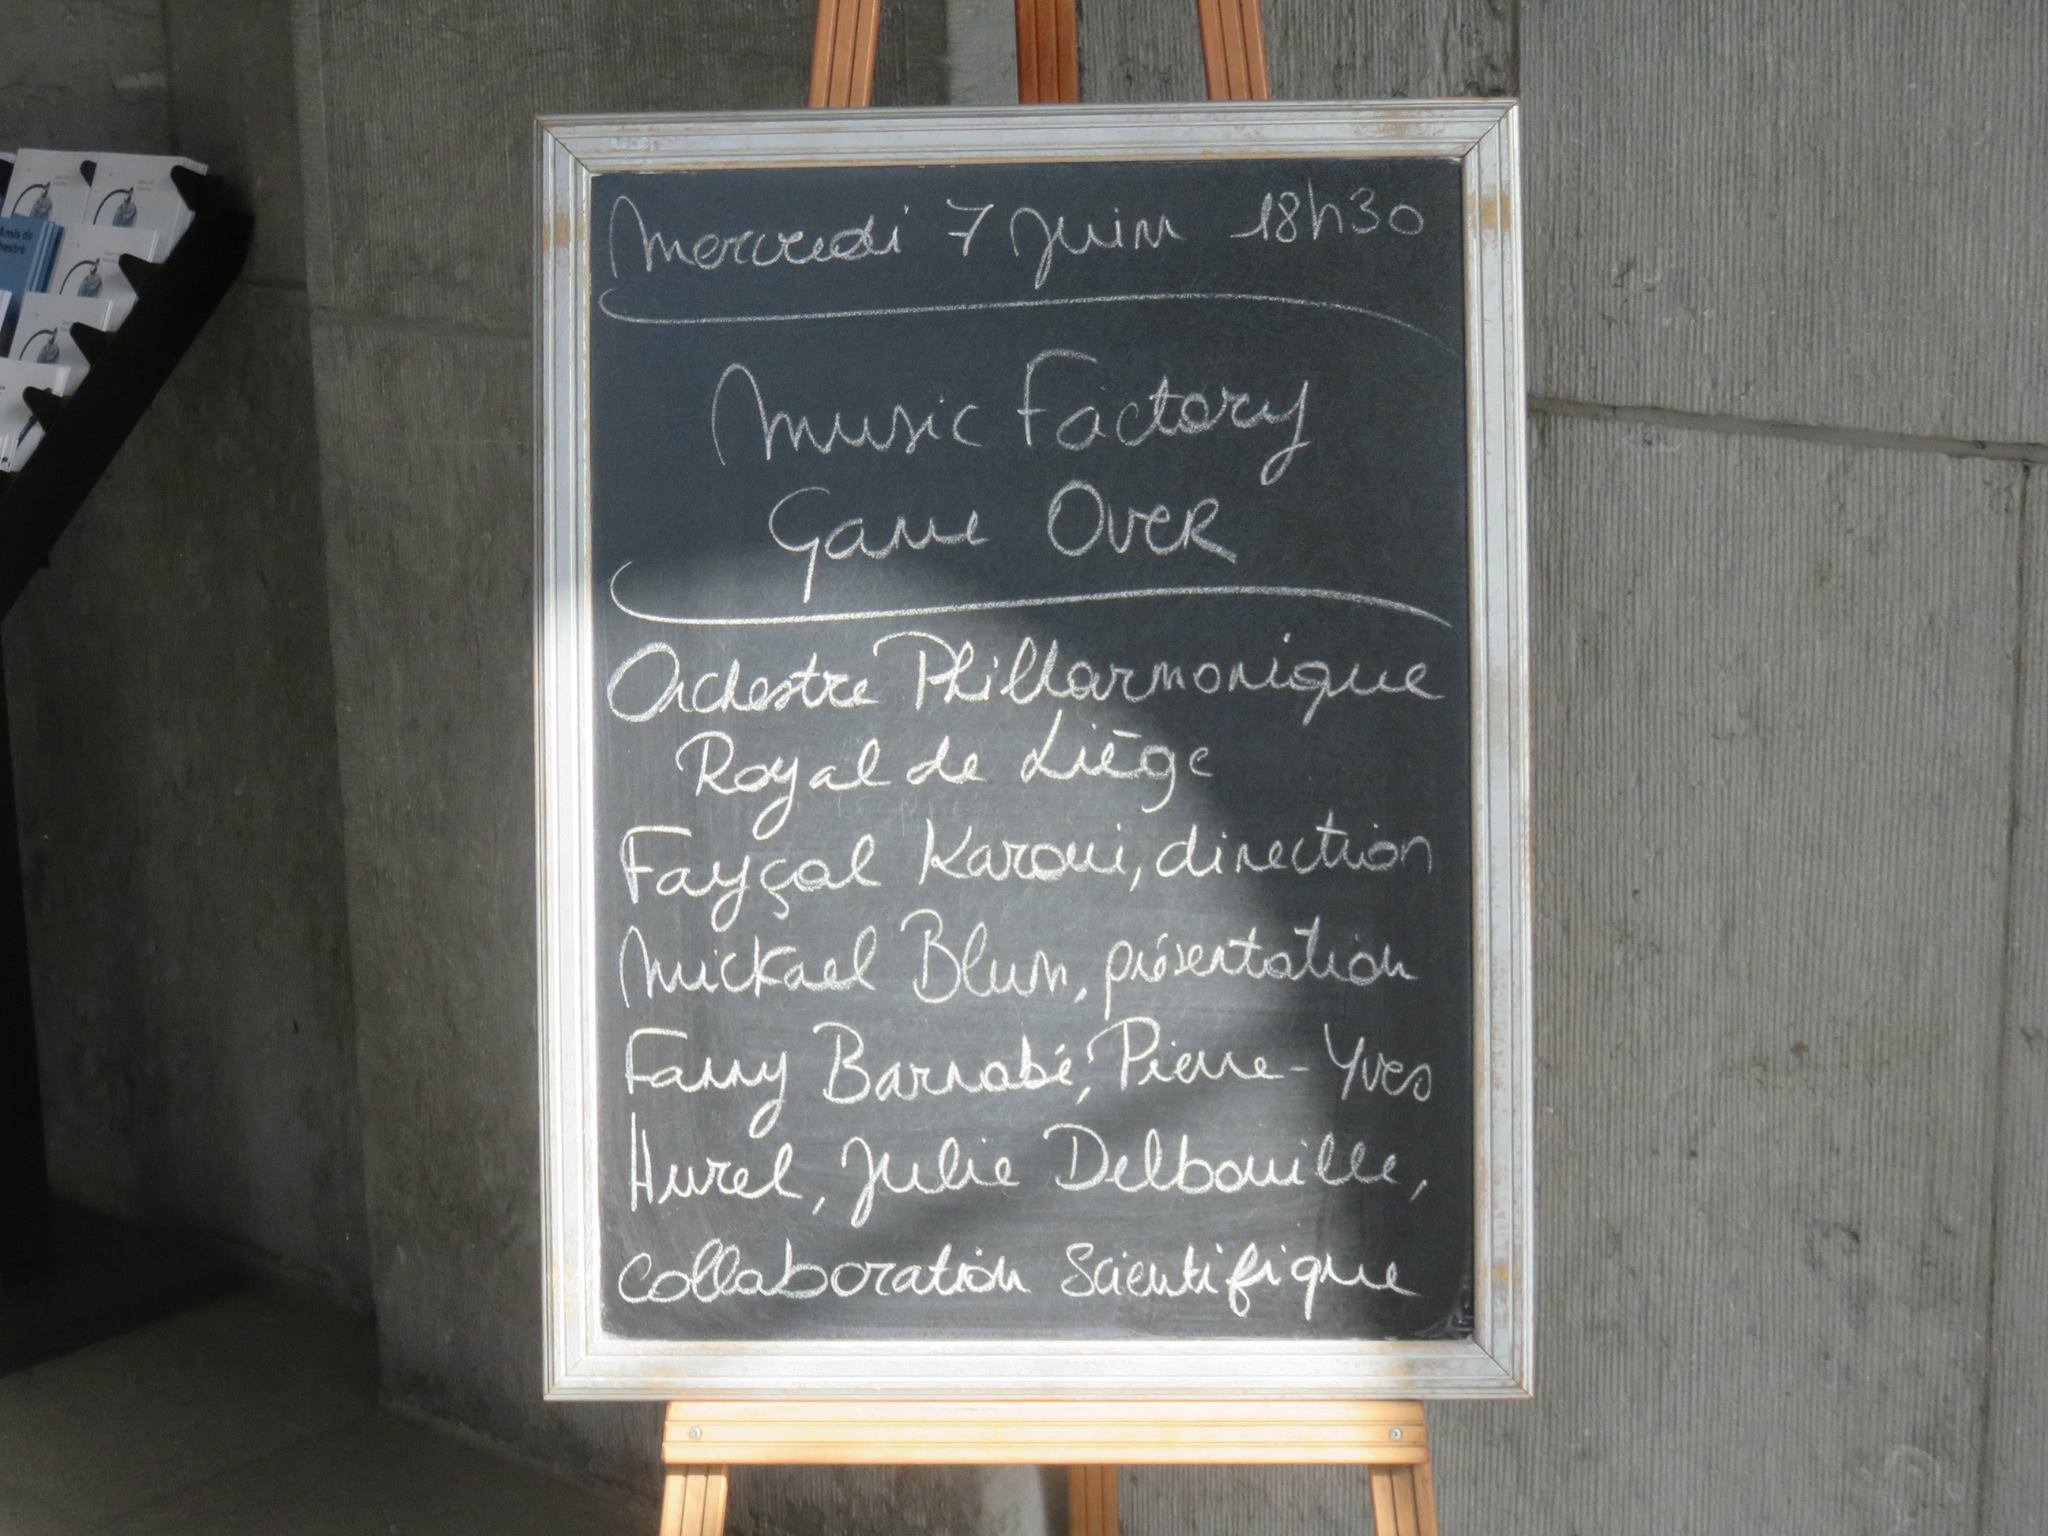 Mercredi 7 Juin 18h30
Music Factory
Game Over
Orchestre Philharmonique
Royal de Liège
Fayçal Karoui, direction
Mickael Blum, présentation
Fanny Barnabé, Pierre-Yves
Hurel, Julie Delbouille,
collaboration Scientifique
Amis de